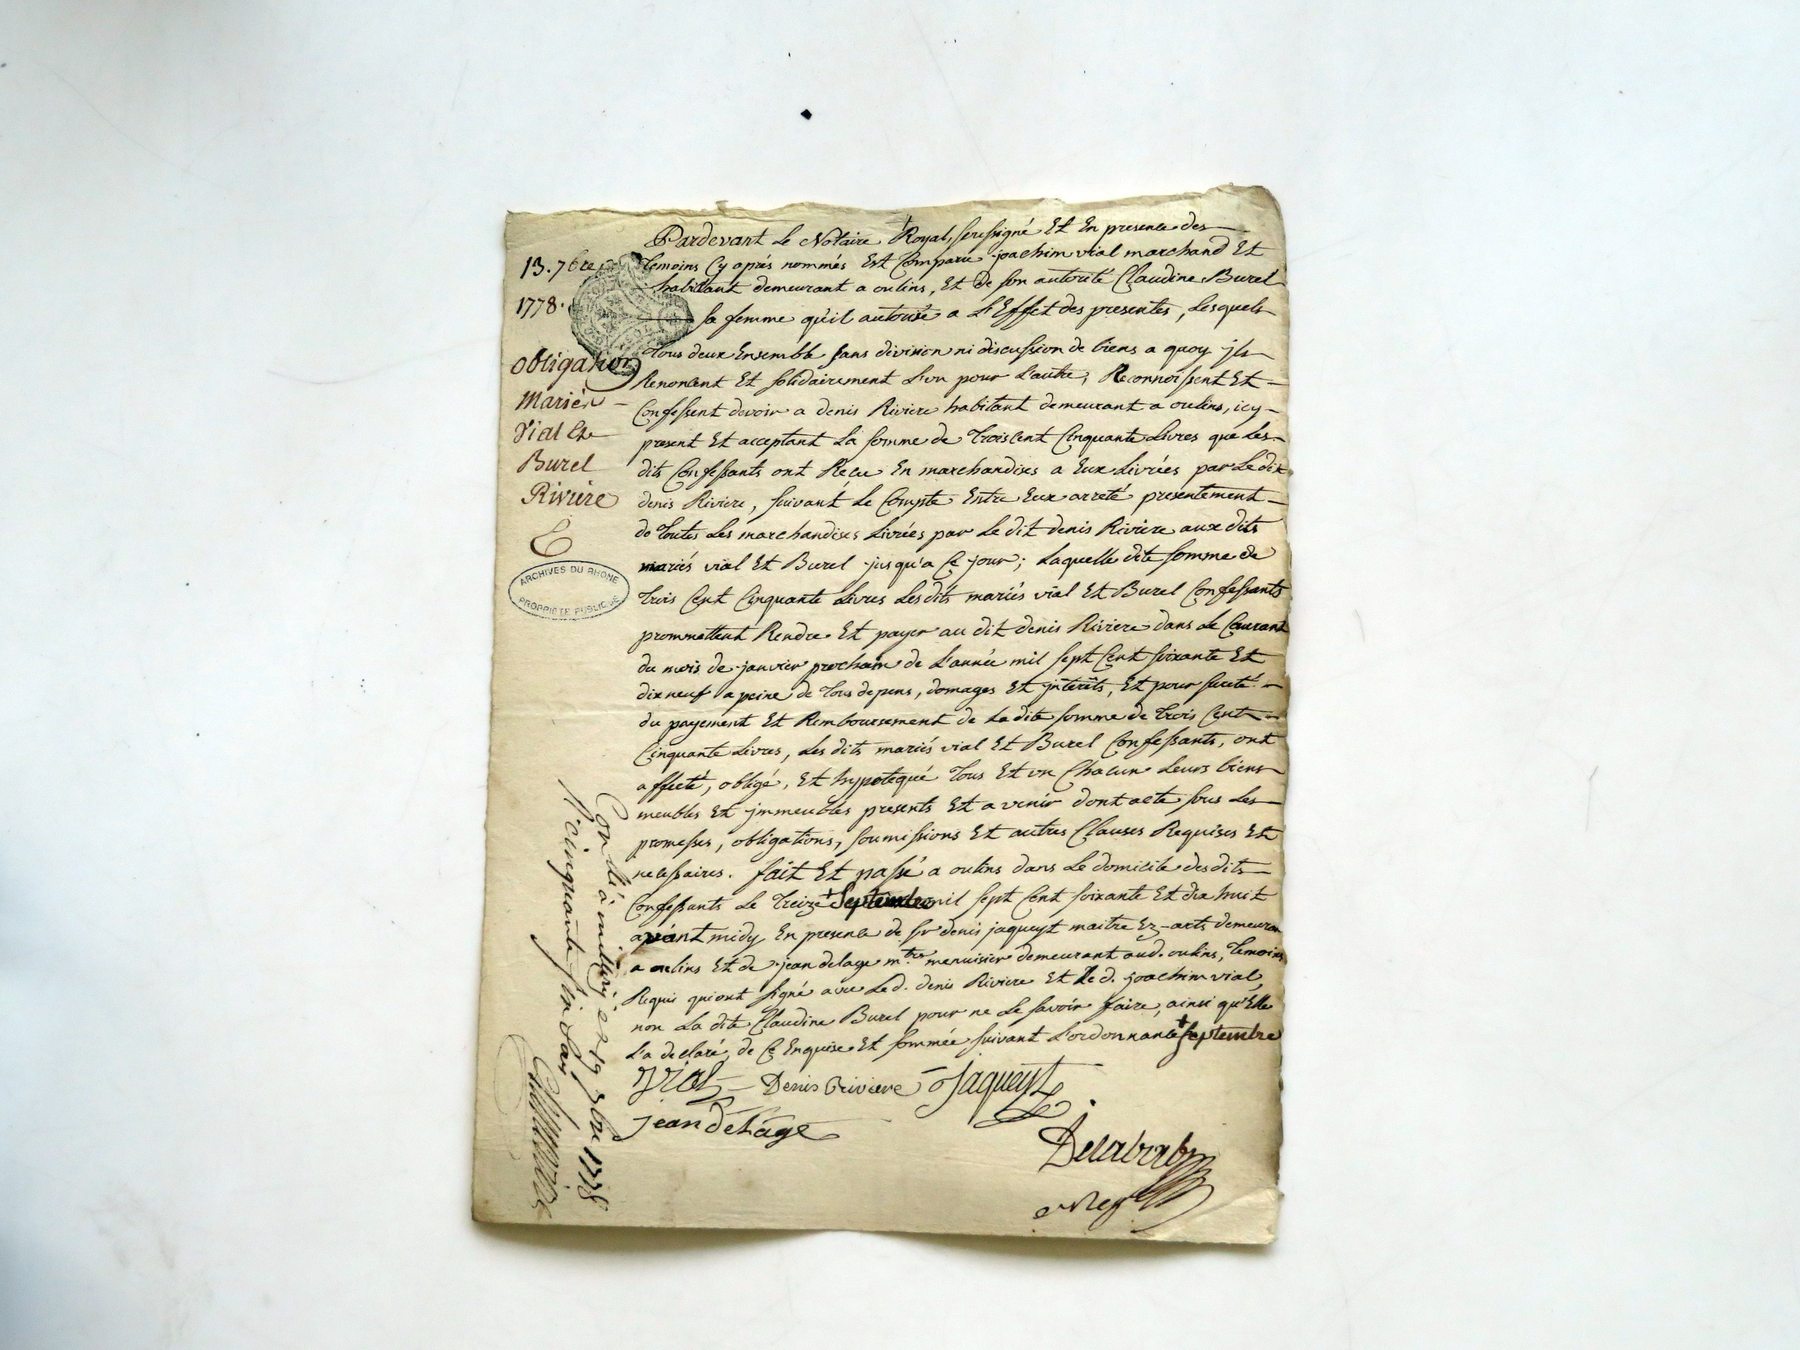 13. 7bre
1778.
obligation
Mariés
Vial et
Burel
Rivière
ARCHIVES DU RHONE
PROPRIETE PUBLIQUE
Pardevant Le Notaire Royal, soussigné Et En presence des
temoins Cy aprés nommés Est Comparu joachim vial marchand Et
habitant demeurant a oulins, Et de son autorité Claudine Burel
sa femme qu'il autorise a L'Effet des presentes, Lesquels
Tous deux Ensemble sans division ni discussion de biens a quoy jls
Renoncent Et solidairement L'un pour L'autre, Reconnoissent Et
Confessent devoir a denis Riviere habitant demeurant a oulins, icy
present Et acceptant La somme de Troiscent Cinquante Livres que Les
dits Confessants ont Recu En marchandises a Eux Livrées par Le dit
denis Riviere, suivant Le Compte Entre Eux arreté presentement
de Toutes Les marchandises Livrées par Le dit denis Riviere aux dits
mariés vial Et Burel jusqu'a Ce jour; Laquelle dite somme de
Trois Cent Cinquante Livres Lesdits mariés vial Et Burel Confessants
prommettent Rendre Et payer au dit denis Riviere dans Le Courant
du mois de janvier prochain de L'année mil sept Cent soixante Et
dix neuf a peine de Tous depens, domages Et jnterêts, Et pour sureté
du payement Et Remboursement de La dite somme de Trois Cent
Cinquante Livres, Les dits mariés vial Et Burel Confessants, ont
affecté, obligé, Et hypotequé Tous Et un Chacun Leurs biens
meubles Et jmmeubles presents Et avenir dont acte sous Les
promesses, obligations, soumissions Et autres Clauses Requises Et
necessaires. fait Et passé a oulins dans Le domicile desdits
Confessants Le Treize + Septembre mil sept Cent soixante Et dix huit
avant midy En presence de sr denis jaqueyt maitre Ez-arts demeurant
a oulins Et de jean delage mtre menuisier demeurant aud. oulins, Temoins
Requis qui ont signé avec Le d. denis Riviere Et Le d. joachim vial
non La dite Claudine Burel pour ne Le savoir faire, ainsi qu'Elle
L'a declaré, de Ce Enquise Et sommée suivant L'ordonnance + septembre
JVial Denis Riviere Jaqueyt
jean delage
Delabrab
Controlé à millery le 19 7bre 1778
cinquante six sols